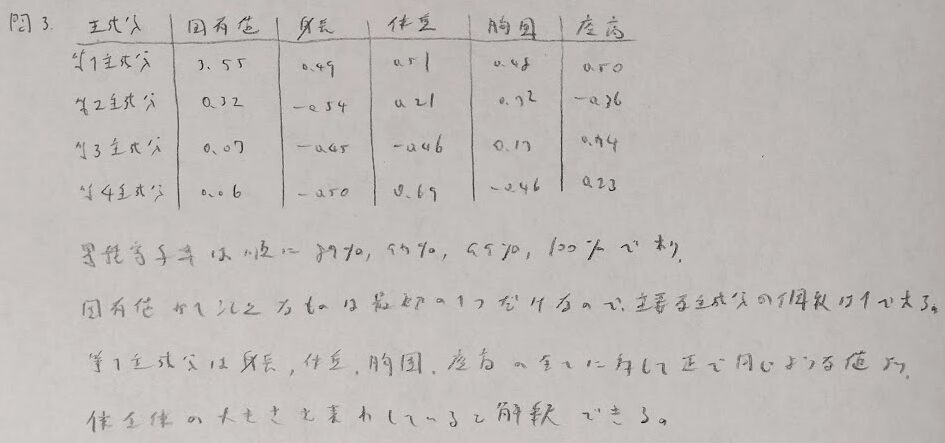 問3. 主成分 固有値 身長 体重 胸囲 座高
第1主成分 3.55 0.49 0.51 0.48 0.50
第2主成分 0.32 -0.54 0.21 0.72 -0.36
第3主成分 0.07 -0.45 -0.46 0.17 0.74
第4主成分 0.06 -0.50 0.69 -0.46 0.23
累積寄与率は順に89%, 97%, 99%, 100%であり、
固有値が1以上なものは最初の1つだけなので、主要な主成分の個数は1である。
第1主成分は身長, 体重, 胸囲, 座高の全てに対して正で同じような値より、
体全体の大きさを表わしていると解釈できる。